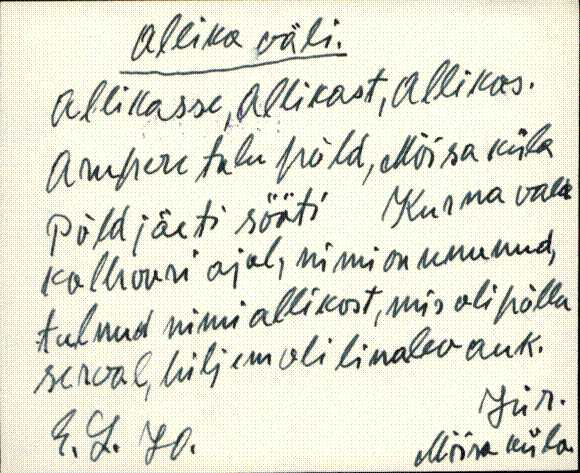 Allika väli.
Allikasse, Allikast, Allikas.
Arupere talu põld, Mõisaküla
Põld jäeti sööti Kurna vald
kolhoosi ajal, nimi on ununud,
tulnud nimi allikost, mis oli põllu
serval, hiljem oli linaleo auk.
Jür.
E. L. 70.
Mõisaküla.